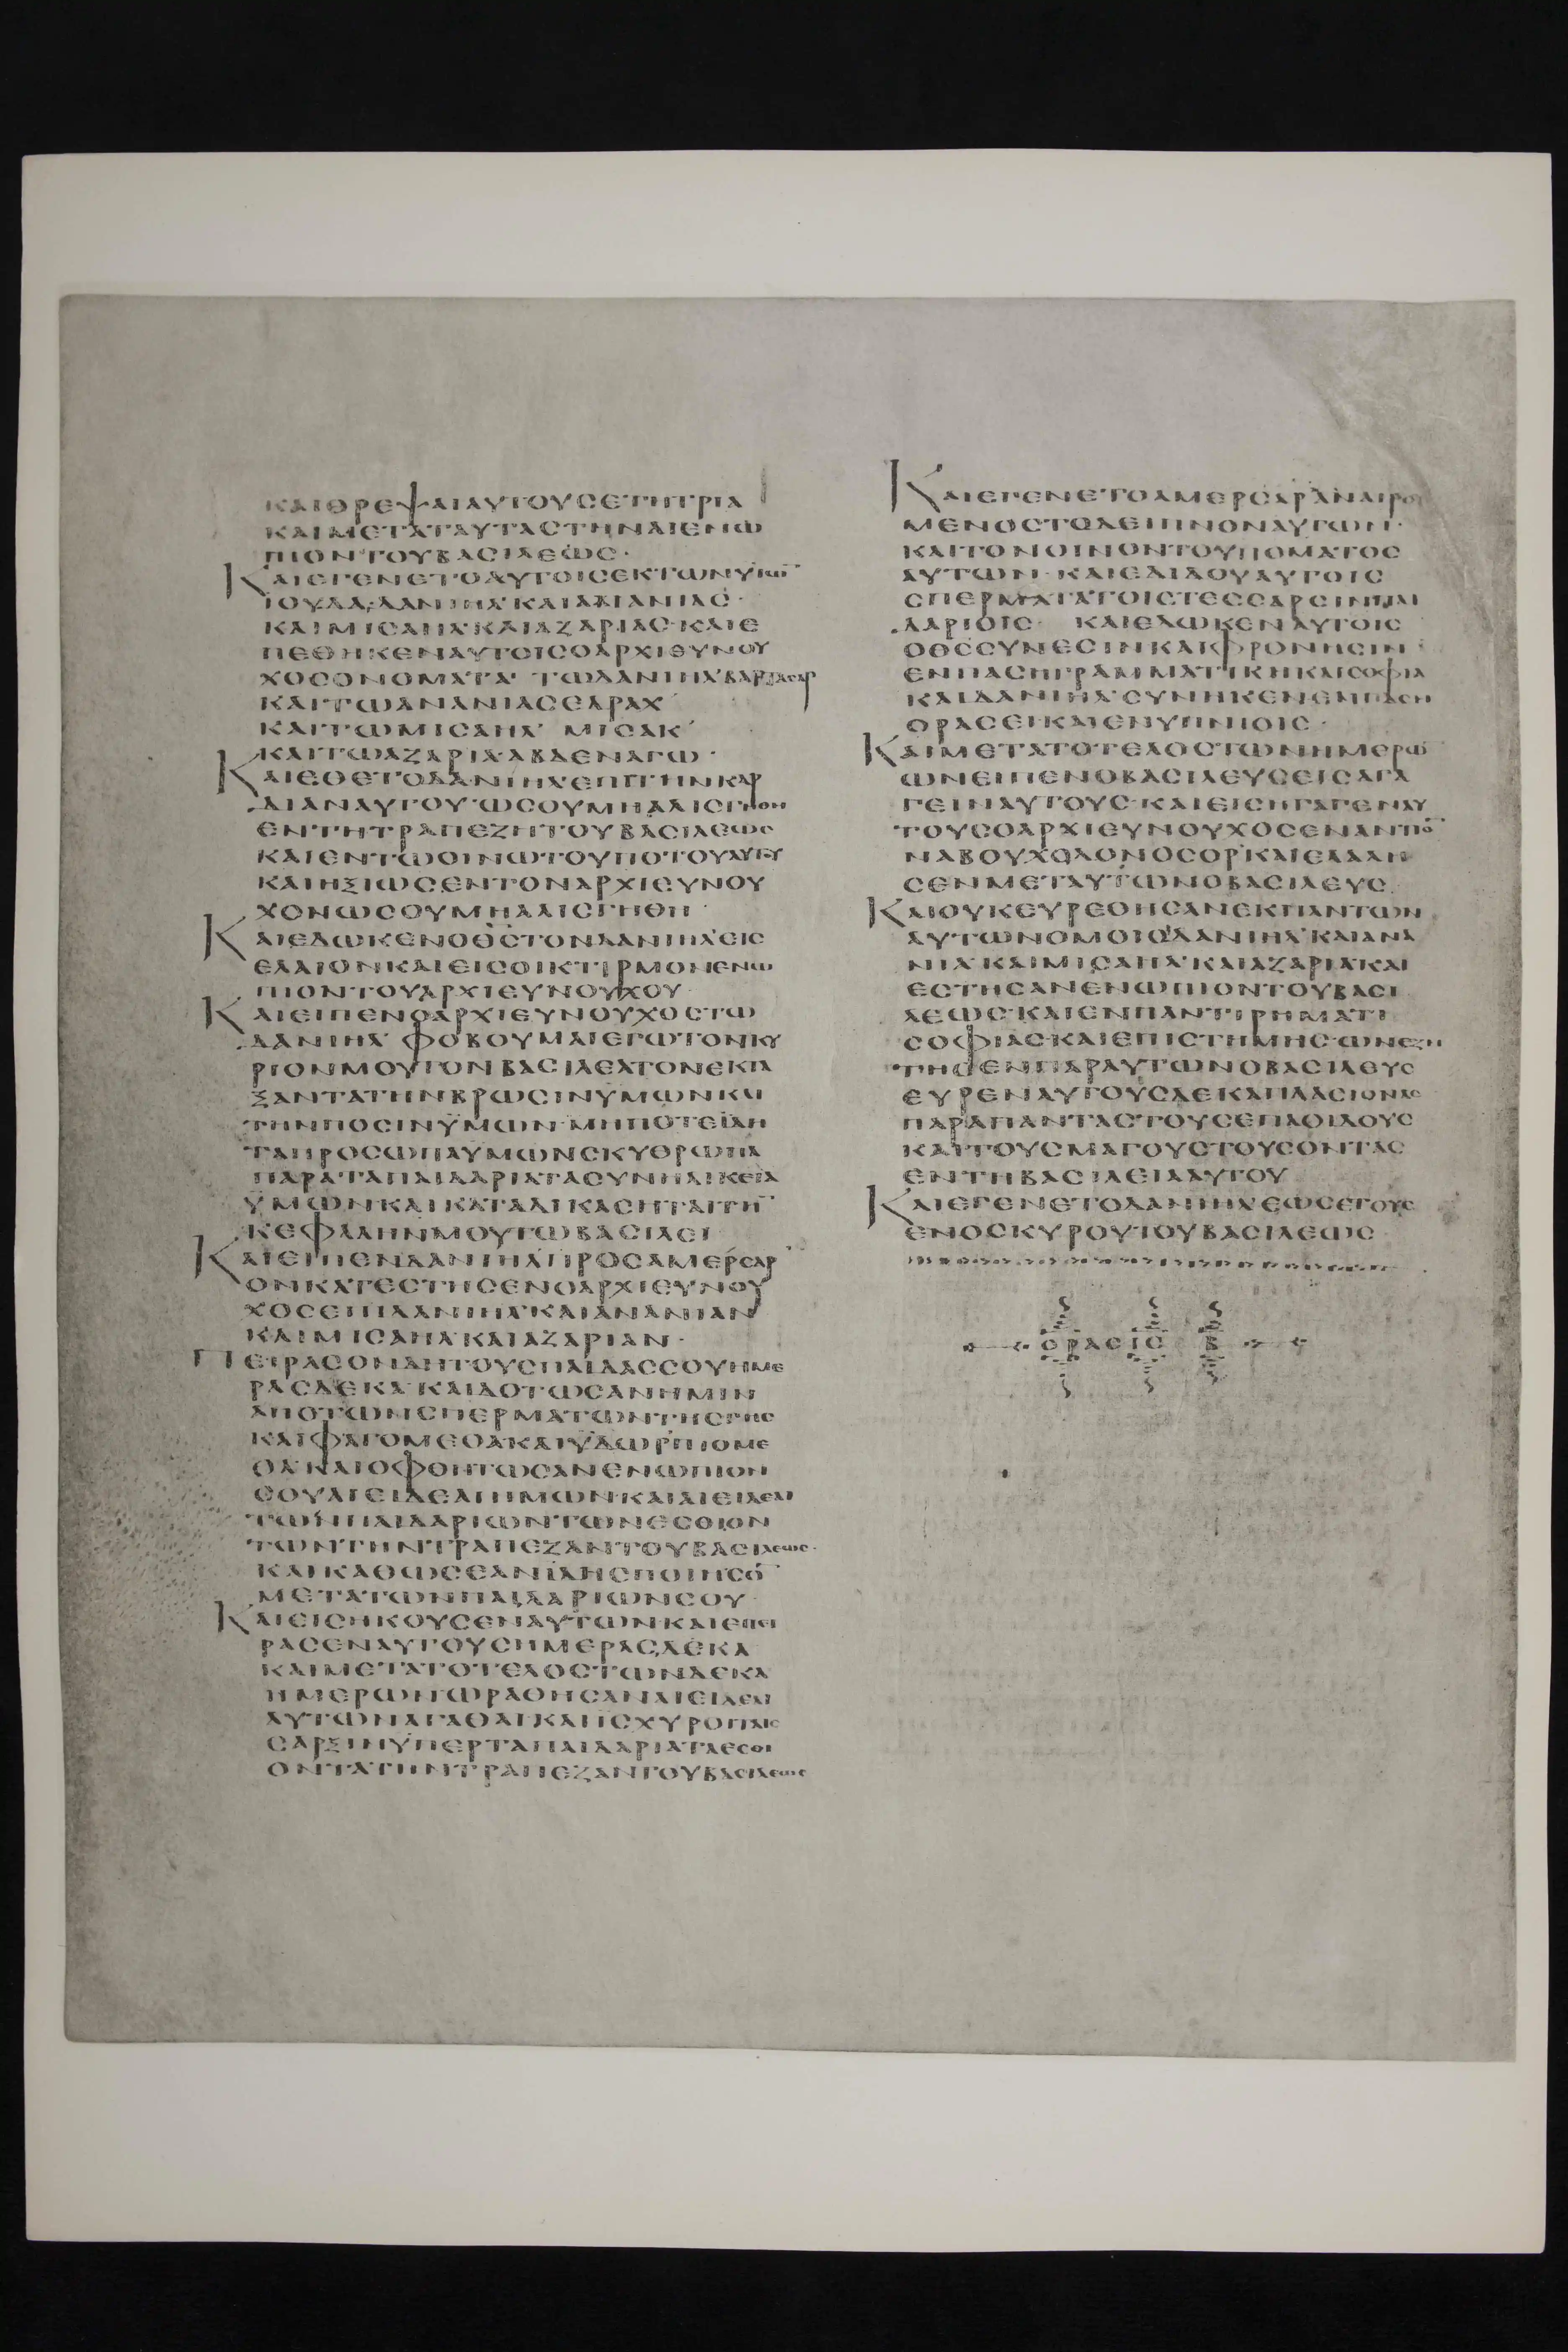 ΚΑΙΘΡΕΨΑΙΑΥΤΟΥΣΕΤΗΤΡΙΑ
ΚΑΙΜΕΤΑΤΑΥΤΑΣΤΗΝΑΙΕΝΩ
ΠΙΟΝΤΟΥΒΑΣΙΛΕΩΣ·
ΚΑΙΕΓΕΝΕΤΟΑΥΤΟΙΣΕΚΤΩΝΥΙΩ̅
ΙΟΥΔΑ·ΔΑΝΙΗΛ·ΚΑΙΑΝΑΝΙΑΣ·
ΚΑΙΜΙΣΑΗΛ·ΚΑΙΑΖΑΡΙΑΣ·ΚΑΙΕ
ΠΕΘΗΚΕΝΑΥΤΟΙΣΟΑΡΧΙΕΥΝΟΥ
ΧΟΣΟΝΟΜΑΤΑ· ΤΩΔΑΝΙΗΛ·ΒΑΡΤΑΣΑΡ
ΚΑΙΤΩΑΝΑΝΙΑΣΕΔΡΑΧ
ΚΑΙΤΩΜΙΣΑΗΛ ΜΙΣΑΚ
ΚΑΙΤΩΑΖΑΡΙΑ·ΑΒΔΕΝΑΓΩ·
ΚΑΙΕΘΕΤΟΔΑΝΙΗΛΕΠΙΤΗΝΚΑΡ
ΔΙΑΝΑΥΤΟΥ·ΩΣΟΥΜΗΑΛΙΣΓΗΘΗ
ΕΝΤΗΤΡΑΠΕΖΗΤΟΥΒΑΣΙΛΕΩΣ
ΚΑΙΕΝΤΩΟΙΝΩΤΟΥΠΟΤΟΥΑΥΤΟΥ
ΚΑΙΗΞΙΩΣΕΝΤΟΝΑΡΧΙΕΥΝΟΥ
ΧΟΝΩΣΟΥΜΗΑΛΙΣΓΗΘΗ·
ΚΑΙΕΔΩΚΕΝΟΘ̅Σ̅ΤΟΝΔΑΝΙΗΛΕΙΣ
ΕΛΑΙΟΝΚΑΙΕΙΣΟΙΚΤΙΡΜΟΝΕΝΩ
ΠΙΟΝΤΟΥΑΡΧΙΕΥΝΟΥΧΟΥ·
ΚΑΙΕΙΠΕΝΟΑΡΧΙΕΥΝΟΥΧΟΣΤΩ
ΔΑΝΙΗΛ ΦΟΒΟΥΜΑΙΕΓΩΤΟΝΚΥ
ΡΙΟΝΜΟΥΤΟΝΒΑΣΙΛΕΑΤΟΝΕΚΤΑ
ΞΑΝΤΑΤΗΝΒΡΩΣΙΝΥΜΩΝΚΑΙ
ΤΗΝΠΟΣΙΝΥΜΩΝ·ΜΗΠΟΤΕΙΔΗ
ΤΑΠΡΟΣΩΠΑΥΜΩΝΣΚΥΘΡΩΠΑ
ΠΑΡΑΤΑΠΑΙΔΑΡΙΑΤΑΣΥΝΗΛΙΚΕΙΑ
ΥΜΩΝΚΑΙΚΑΤΑΔΙΚΑΣΗΤΑΙΤΗ̅
ΚΕΦΑΛΗΝΜΟΥΤΩΒΑΣΙΛΕΙ
ΚΑΙΕΙΠΕΝΔΑΝΙΗΛΠΡΟΣΑΜΕΡΣΑΡ
ΟΝΚΑΤΕΣΤΗΣΕΝΟΑΡΧΙΕΥΝΟΥ
ΧΟΣΕΠΙΔΑΝΙΗΛ·ΚΑΙΑΝΑΝΙΑΝ
ΚΑΙΜΙΣΑΗΛ·ΚΑΙΑΖΑΡΙΑΝ·
ΠΕΙΡΑΣΟΝΔΗΤΟΥΣΠΑΙΔΑΣΣΟΥΗΜΕ
ΡΑΣΔΕΚΑ·ΚΑΙΔΟΤΩΣΑΝΗΜΙΝ
ΑΠΟΤΩΝΣΠΕΡΜΑΤΩΝΤΗΣΓΗΣ
ΚΑΙΦΑΓΟΜΕΘΑΚΑΙΥΔΩΡΠΙΟΜΕ
ΘΑ·ΚΑΙΟΦΘΗΤΩΣΑΝΕΝΩΠΙΟΝ
ΣΟΥΑΙΕΙΔΕΑΙΗΜΩΝΚΑΙΑΙΕΙΔΕΑΙ
ΤΩΝΠΑΙΔΑΡΙΩΝΤΩΝΕΣΘΙΟΝ
ΤΩΝΤΗΝΤΡΑΠΕΖΑΝΤΟΥΒΑΣΙΛΕΩΣ·
ΚΑΙΚΑΘΩΣΕΑΝΙΔΗΣΠΟΙΗΣΟ̅
ΜΕΤΑΤΩΝΠΑΙΔΑΡΙΩΝΣΟΥ·
ΚΑΙΕΙΣΗΚΟΥΣΕΝΑΥΤΩΝΚΑΙΕΠΕΙ
ΡΑΣΕΝΑΥΤΟΥΣΗΜΕΡΑΣΔΕΚΑ
ΚΑΙΜΕΤΑΤΟΤΕΛΟΣΤΩΝΔΕΚΑ
ΗΜΕΡΩΝΩΡΑΘΗΣΑΝΑΙΕΙΔΕΑΙ
ΑΥΤΩΝΑΓΑΘΑΙΚΑΙΙΣΧΥΡΟΙΤΑΙΣ
ΣΑΡΞΙΝΥΠΕΡΤΑΠΑΙΔΑΡΙΑΤΑΕΣΘΙ
ΟΝΤΑΤΗΝΤΡΑΠΕΖΑΝΤΟΥΒΑΣΙΛΕΩΣ
ΚΑΙΕΓΕΝΕΤΟΑΜΕΡΣΑΡΑΝΑΙΡΟΥ
ΜΕΝΟΣΤΟΔΕΙΠΝΟΝΑΥΤΩΝ·
ΚΑΙΤΟΝΟΙΝΟΝΤΟΥΠΟΜΑΤΟΣ
ΑΥΤΩΝ·ΚΑΙΕΔΙΔΟΥΑΥΤΟΙΣ
ΣΠΕΡΜΑΤΑΤΟΙΣΤΕΣΣΑΡΣΙΝΠΑΙ
ΔΑΡΙΟΙΣ· ΚΑΙΕΔΩΚΕΝΑΥΤΟΙΣ
ΟΘ̅Σ̅ΣΥΝΕΣΙΝΚΑΙΦΡΟΝΗΣΙΝ
ΕΝΠΑΣΗΓΡΑΜΜΑΤΙΚΗΚΑΙΣΟΦΙΑ
ΚΑΙΔΑΝΙΗΛ·ΣΥΝΗΚΕΝΕΜΠΑΣΗ
ΟΡΑΣΕΙΚΑΙΕΝΥΠΝΙΟΙΣ·
ΚΑΙΜΕΤΑΤΟΤΕΛΟΣΤΩΝΗΜΕΡΩ̅
ΩΝΕΙΠΕΝΟΒΑΣΙΛΕΥΣΕΙΣΑΓΑ
ΓΕΙΝΑΥΤΟΥΣ·ΚΑΙΕΙΣΗΓΑΓΕΝΑΥ
ΤΟΥΣΟΑΡΧΙΕΥΝΟΥΧΟΣΕΝΑΝΤΙΟ̅
ΝΑΒΟΥΧΟΔΟΝΟΣΟΡ·ΚΑΙΕΛΑΛΗ
ΣΕΝΜΕΤΑΥΤΩΝΟΒΑΣΙΛΕΥΣ
ΚΑΙΟΥΚΕΥΡΕΘΗΣΑΝΕΚΠΑΝΤΩΝ
ΑΥΤΩΝΟΜΟΙΟΙΔΑΝΙΗΛ·ΚΑΙΑΝΑ
ΝΙΑ·ΚΑΙΜΙΣΑΗΛ·ΚΑΙΑΖΑΡΙΑ·ΚΑΙ
ΕΣΤΗΣΑΝΕΝΩΠΙΟΝΤΟΥΒΑΣΙ
ΛΕΩΣ·ΚΑΙΕΝΠΑΝΤΙΡΗΜΑΤΙ
ΣΟΦΙΑΣ·ΚΑΙΕΠΙΣΤΗΜΗΣ·ΩΝΕΖΗ
ΤΗΣΕΝΠΑΡΑΥΤΩΝΟΒΑΣΙΛΕΥΣ
ΕΥΡΕΝΑΥΤΟΥΣΔΕΚΑΠΛΑΣΙΟΝΑΣ
ΠΑΡΑΠΑΝΤΑΣΤΟΥΣΕΠΑΟΙΔΟΥΣ
ΚΑΙΤΟΥΣΜΑΓΟΥΣΤΟΥΣΟΝΤΑΣ
ΕΝΤΗΒΑΣΙΛΕΙΑΑΥΤΟΥ
ΚΑΙΕΓΕΝΕΤΟΔΑΝΙΗΛΕΩΣΕΤΟΥΣ
ΕΝΟΣΚΥΡΟΥΤΟΥΒΑΣΙΛΕΩΣ·
ΟΡΑΣΙΣ Β